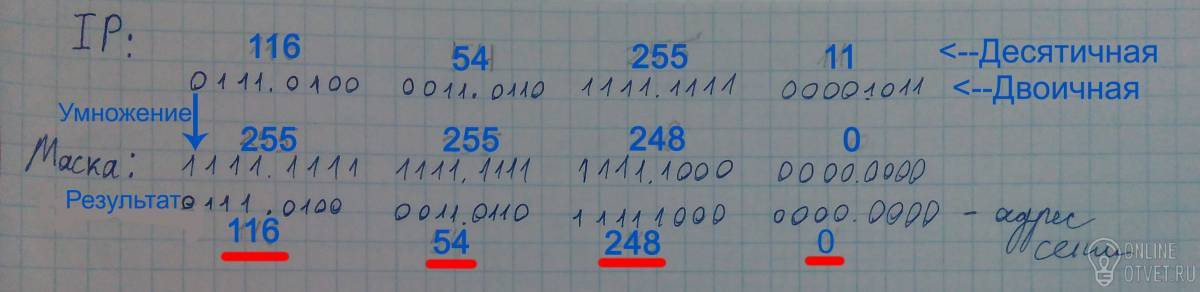 IP:
116 54 255 11 <--Десятичная
0111.0100 0011.0110 1111.1111 00001.011 <--Двоичная
Умножение
255 255 248 0
Маска: 1111.1111 1111.1111 1111.1000 0000.0000
Результат 0111.0100 0011.0110 11111000 0000.0000 - адрес
116 54 248 0 сети
ONLINE
OTVET.RU